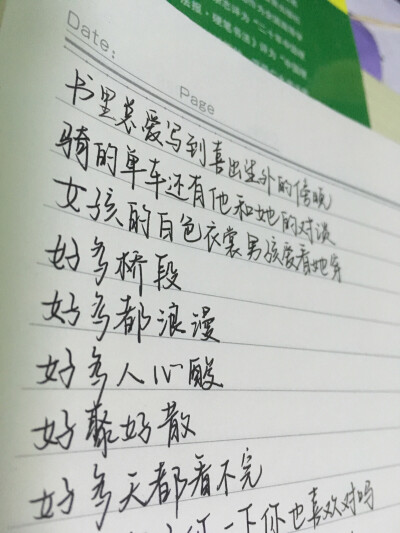 法报·硬笔书法》评为"二十年中国
Date:
Page
书里总爱写到喜出望外的傍晚
骑的单车还有他和她的对谈
女孩的白色衣裳男孩爱看她穿
好多桥段
好多都浪漫
好多人心酸
好聚好散
好多天都看不完
一下你也喜欢对吗